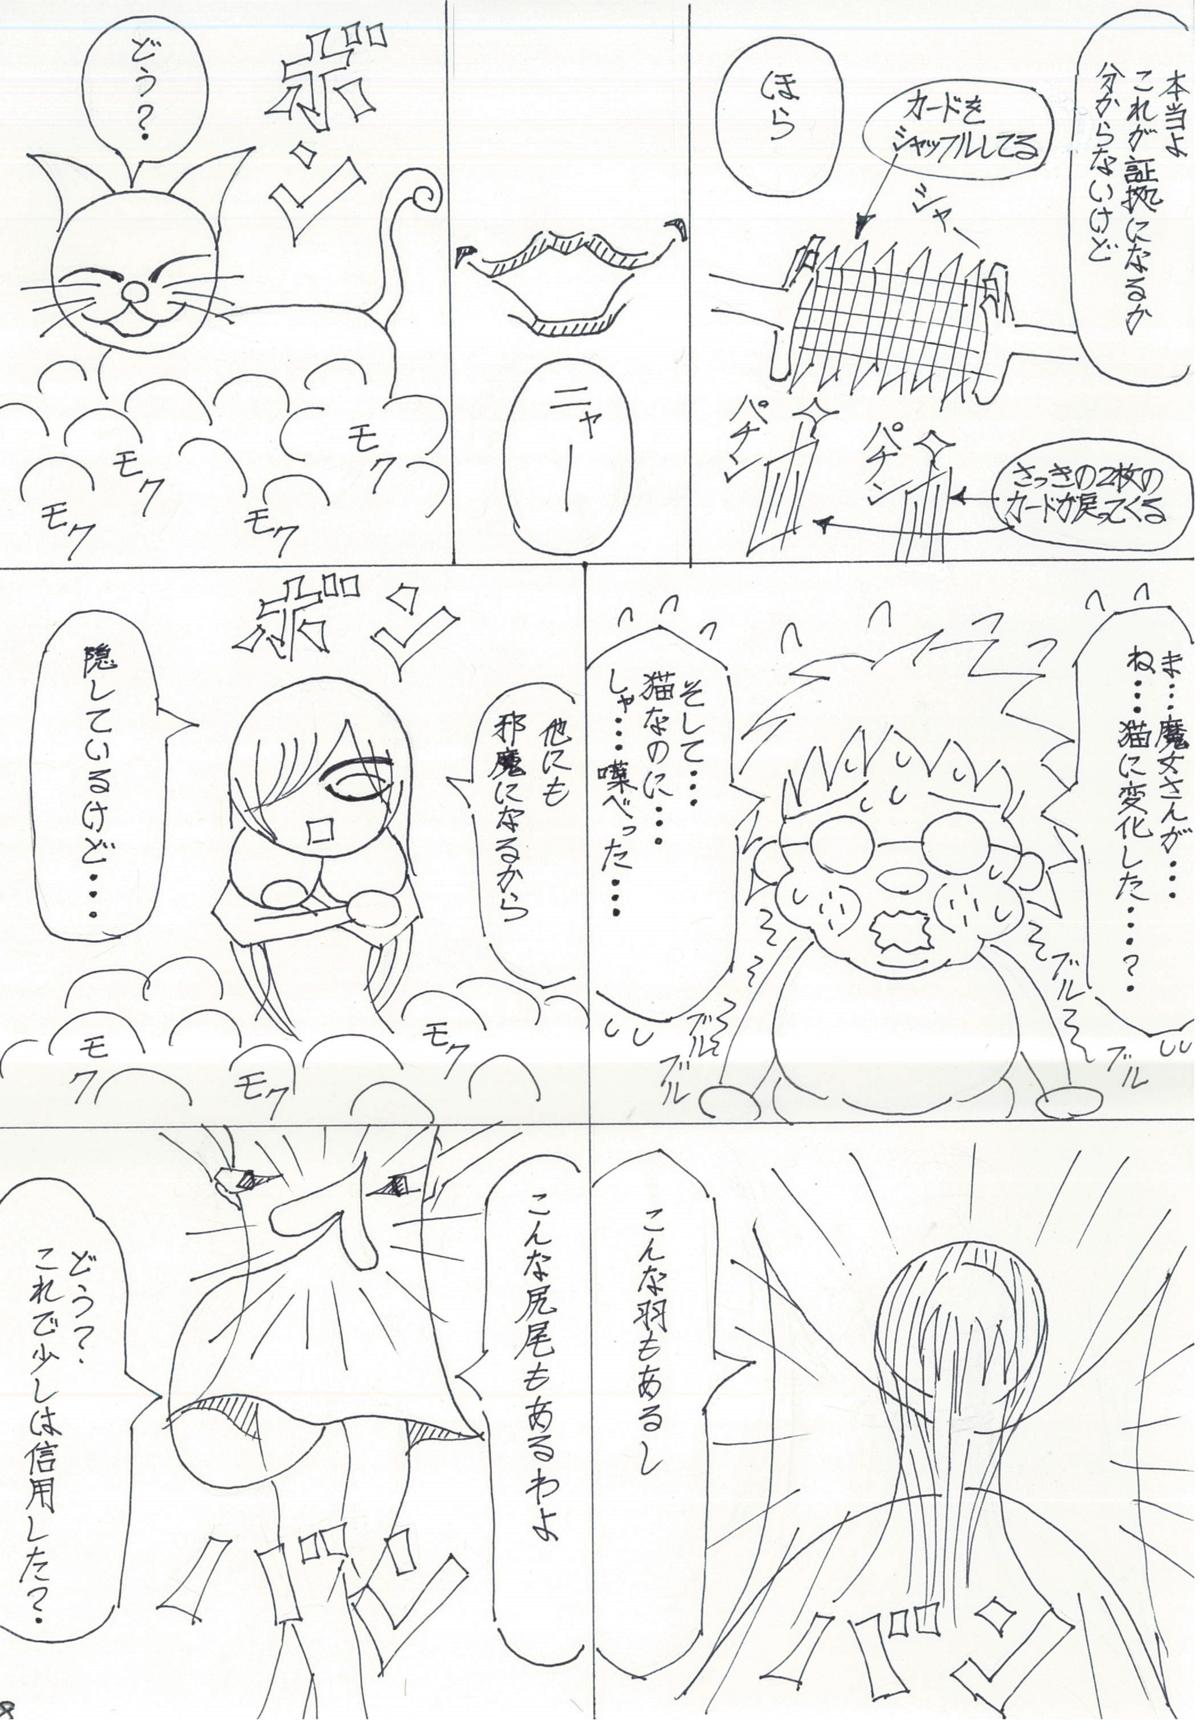 本当よ
これが証拠になるか
分からないけど
カードを
シャッフルしてる
ほら
シャー
パチン
パチン
さっきの2枚の
カードが戻ってくる
ニャー
ボン
どう?
モク
モク
モク
モク
ま…魔女さんが…
ね…猫に変化した…?
そして…
猫なのに…
しゃ…喋べった…
ブル
ブル
ブル
ブル
ボン
他にも
邪魔になるから
隠しているけど…
モク
モク
モク
こんな羽もあるし
バン
こんな尻尾もあるわよ
バン
どう?
これで少しは信用した?
8